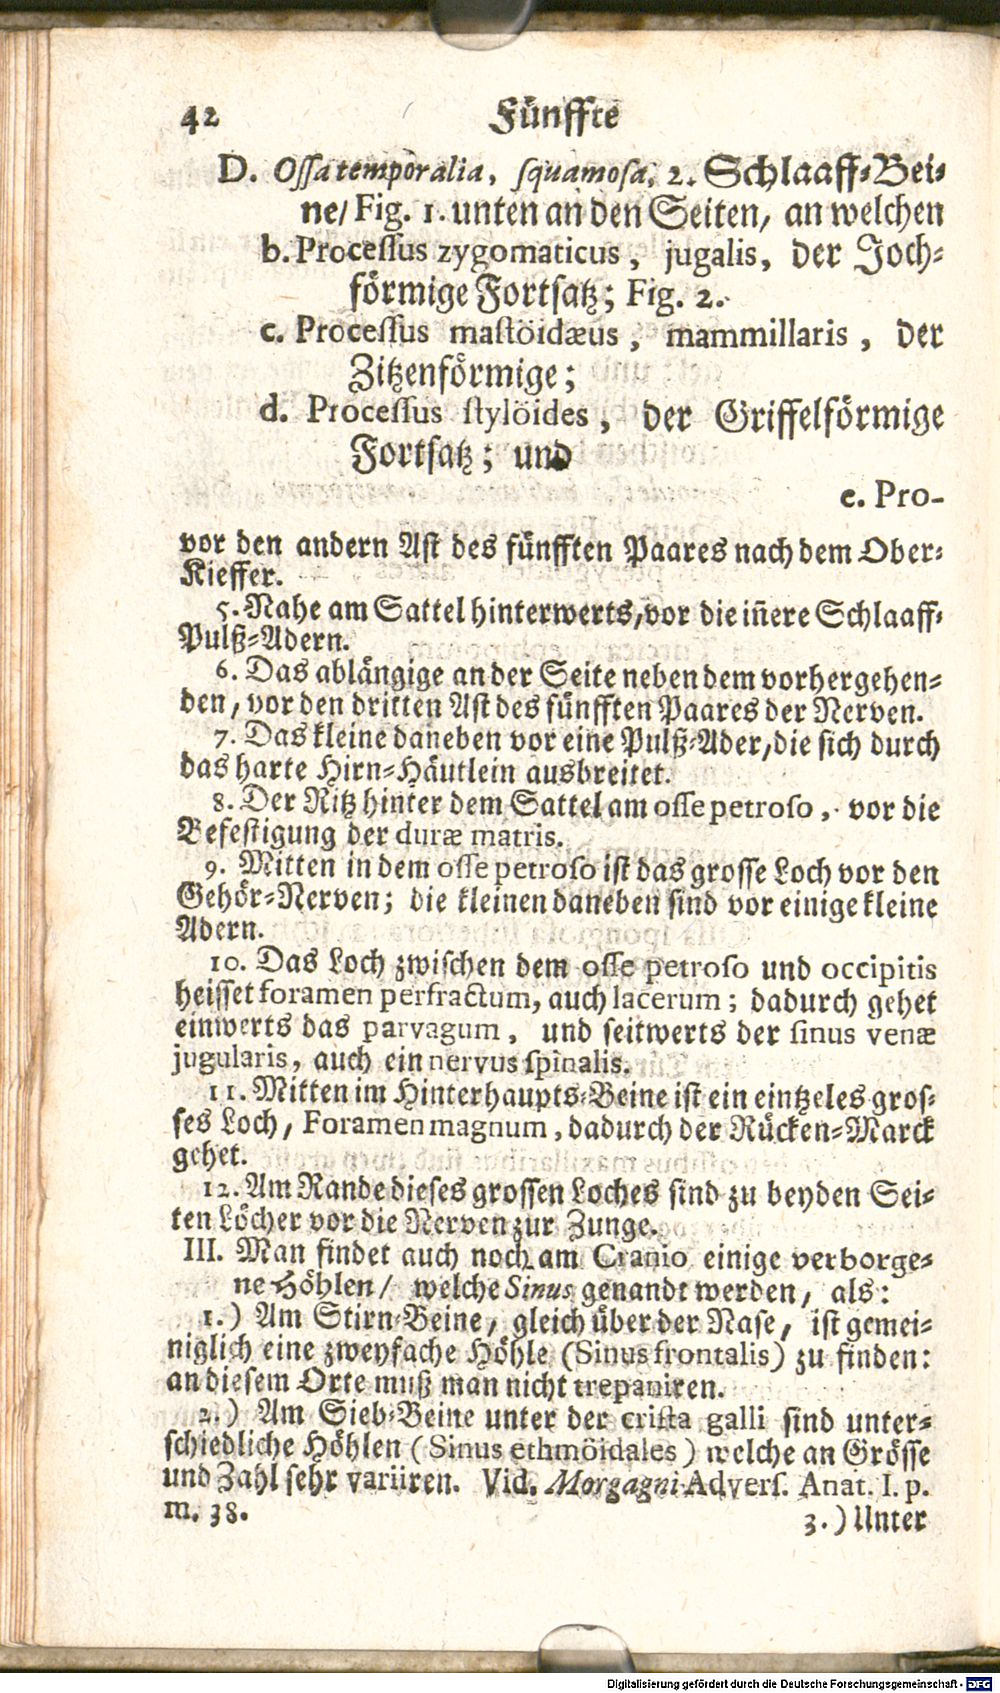 42 Fünffte
D. Ossa temporalia, squamosa, 2. Schlaaff-Bei-
ne/ Fig. 1. unten an den Seiten, an welchen
b. Processus zygomaticus, jugalis, der Joch-
förmige Fortsatz; Fig. 2.
c. Processus mastöidæus, mammillaris, der
Zitzenförmige;
d. Processus stylöides, der Griffelförmige
Fortsatz; und
e. Pro-
vor den andern Ast des fünfften Paares nach dem Ober-
Kieffer.
5. Nahe am Sattel hinterwerts, vor die iñere Schlaaff-
Pulß-Adern.
6. Das ablängige an der Seite neben dem vorhergehen-
den, vor den dritten Ast des fünfften Paares der Nerven.
7. Das kleine daneben vor eine Pulß-Ader, die sich durch
das harte Hirn-Häutlein ausbreitet.
8. Der Ritz hinter dem Sattel am osse petroso, vor die
Befestigung der duræ matris.
9. Mitten in dem osse petroso ist das grosse Loch vor den
Gehör-Nerven; die kleinen daneben sind vor einige kleine
Adern.
10. Das Loch zwischen dem osse petroso und occipitis
heisset foramen perfractum, auch lacerum; dadurch gehet
einwerts das parvagum, und seitwerts der sinus venæ
jugularis, auch ein nervus spinalis.
11. Mitten im Hinterhaupts-Beine ist ein eintzeles gros-
ses Loch, Foramen magnum, dadurch der Rücken-Marck
gehet.
12. Am Rande dieses grossen Loches sind zu beyden Sei-
ten Löcher vor die Nerven zur Zunge.
III. Man findet auch noch am Cranio einige verborge-
ne Höhlen/ welche Sinus genandt werden, als:
1.) Am Stirn-Beine, gleich über der Nase, ist gemei-
niglich eine zweyfache Höhle (Sinus frontalis) zu finden:
an diesem Orte muß man nicht trepaniren.
2.) Am Sieb-Beine unter der crista galli sind unter-
schiedliche Höhlen (Sinus ethmöidales) welche an Grösse
und Zahl sehr variiren. Vid. Morgagni Advers. Anat. I. p.
m. 38.
3.) Unter
Digitalisierung gefördert durch die Deutsche Forschungsgemeinschaft - DFG